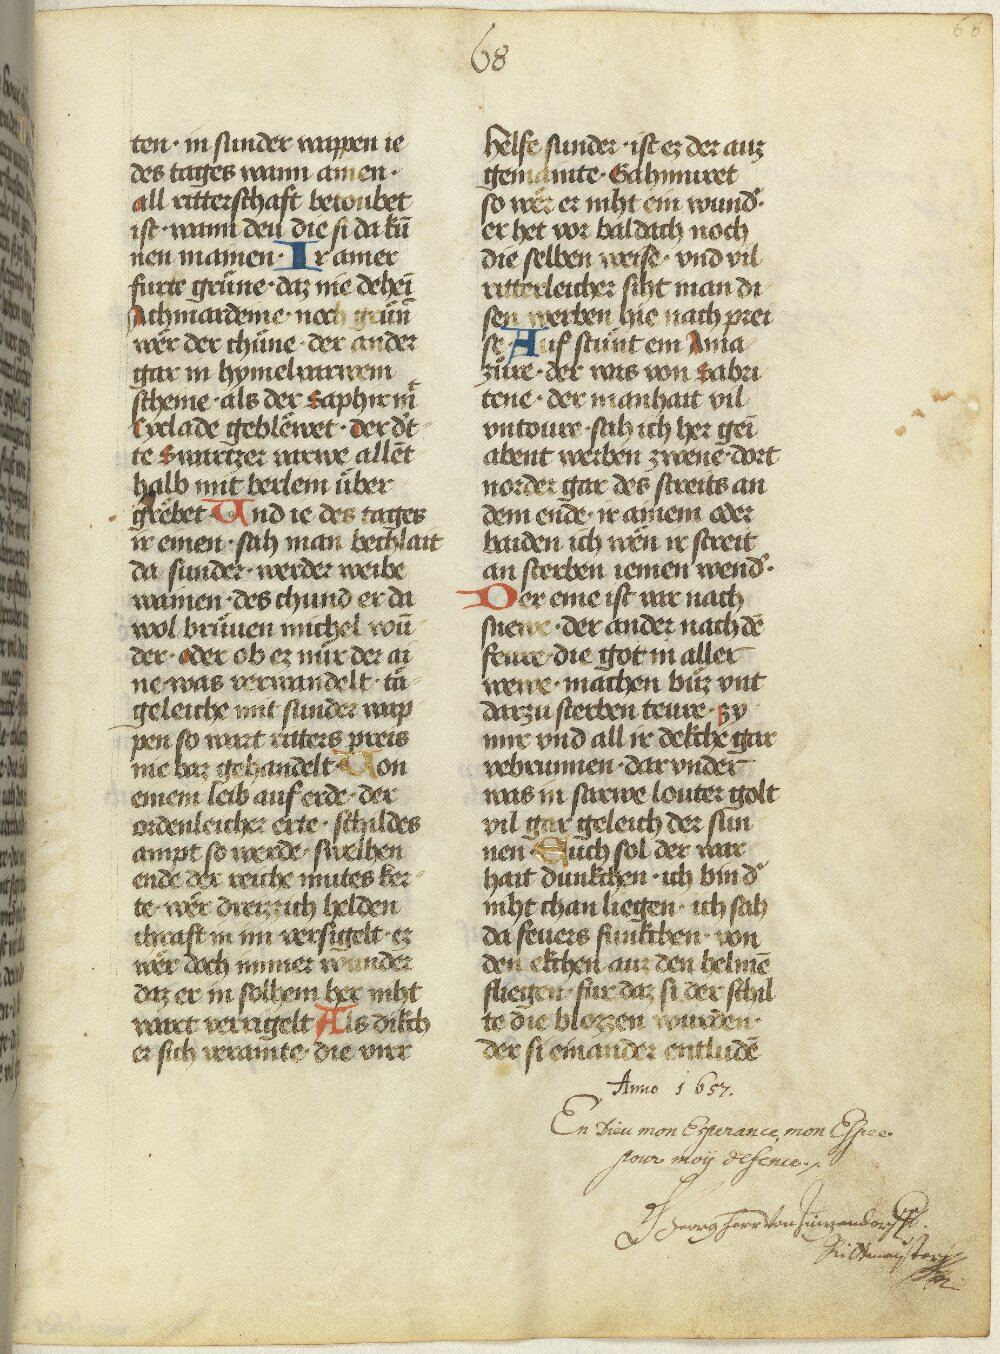 68
68
ten · in sunder wappen ie
des tages wann ainen ·
all ritterschaft betoubet
ist · wann den die si da kū
nen mainen · Ir ainer
furte grüne · daz nie dehei
Achmardeine · noch grün
wër der chüne · der ander
gar in hymelvarwem
scheine · als der saphir in
Cyclade geblëwet · der drit
te swartzer varwe allēt
halb mit berlein über
grëbet · Und ie des tages
ir einen · sah man bechlait
da sunder · werder weibe
wainen · des chund er da
wol brüven michel wū
der · oder ob er nür der ai
ne was verwandelt · tä
geleiche mit sunder wap
pen so wart ritters preis
nie baz gehandelt · Von
einem leib auf erde · der
ordenleicher erte · schildes
ampt so werde · swelhen
ende der reiche mutes ker
te · wër dreizzich helden
chraft in im versigelt · ez
wër doch immer wunder
daz er in solhem her niht
wart verrigelt Als dikch
er sich veramte · die virr
helfe sunder · ist ez der auz
genamte · Gahmuret
so wër er niht ein wund̾ ·
er het vor baldach noch
die selben weise · vnd vil
ritterleicher siht man di
sen werben hie nach prei
se · Auf stunt ein Ama
züre · der was von sabri
tene · der manhait vil
vntoure · sah ich her gei
abent werben zwene · dort
norder gar des streits an
dem ende · ir ainem oder
baiden ich wën ir streit
an sterben iemen wend̾ ·
Der eine ist var nach
snewe · der ander nach dē
feure · die got in aller
wewe · machen buz vnt
darzu sterben teure · zv
mir vnd all ir dekche gar
vebrunnen · dar vnder
was in sarwe louter golt
vil gar geleich der sun
nen · Euch sol der war
hait dunkchen · ich bin d̾
niht chan liegen · ich sah
da feuers funkchen · von
den ekchen auz den helmē
fliegen · für daz si der schil
te die blozzen wurden ·
der si einander entludē
Anno 1657.
En Dieu mon Esperance, mon Espee
pour moÿ defence.
Georg Herr von
Rittmayster